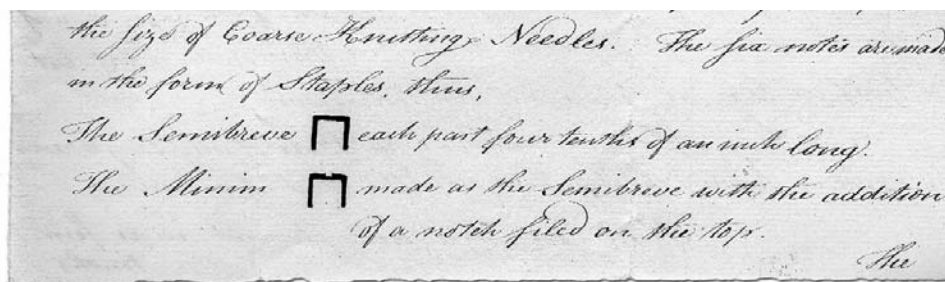 the size of Coarse Knitting Needles. The six notes are made
in the form of Staples, thus,
The Semibreve each part four tenths of an inch long.
The Minim made as the Semibreve with the addition
of a notch filed on the top.
The